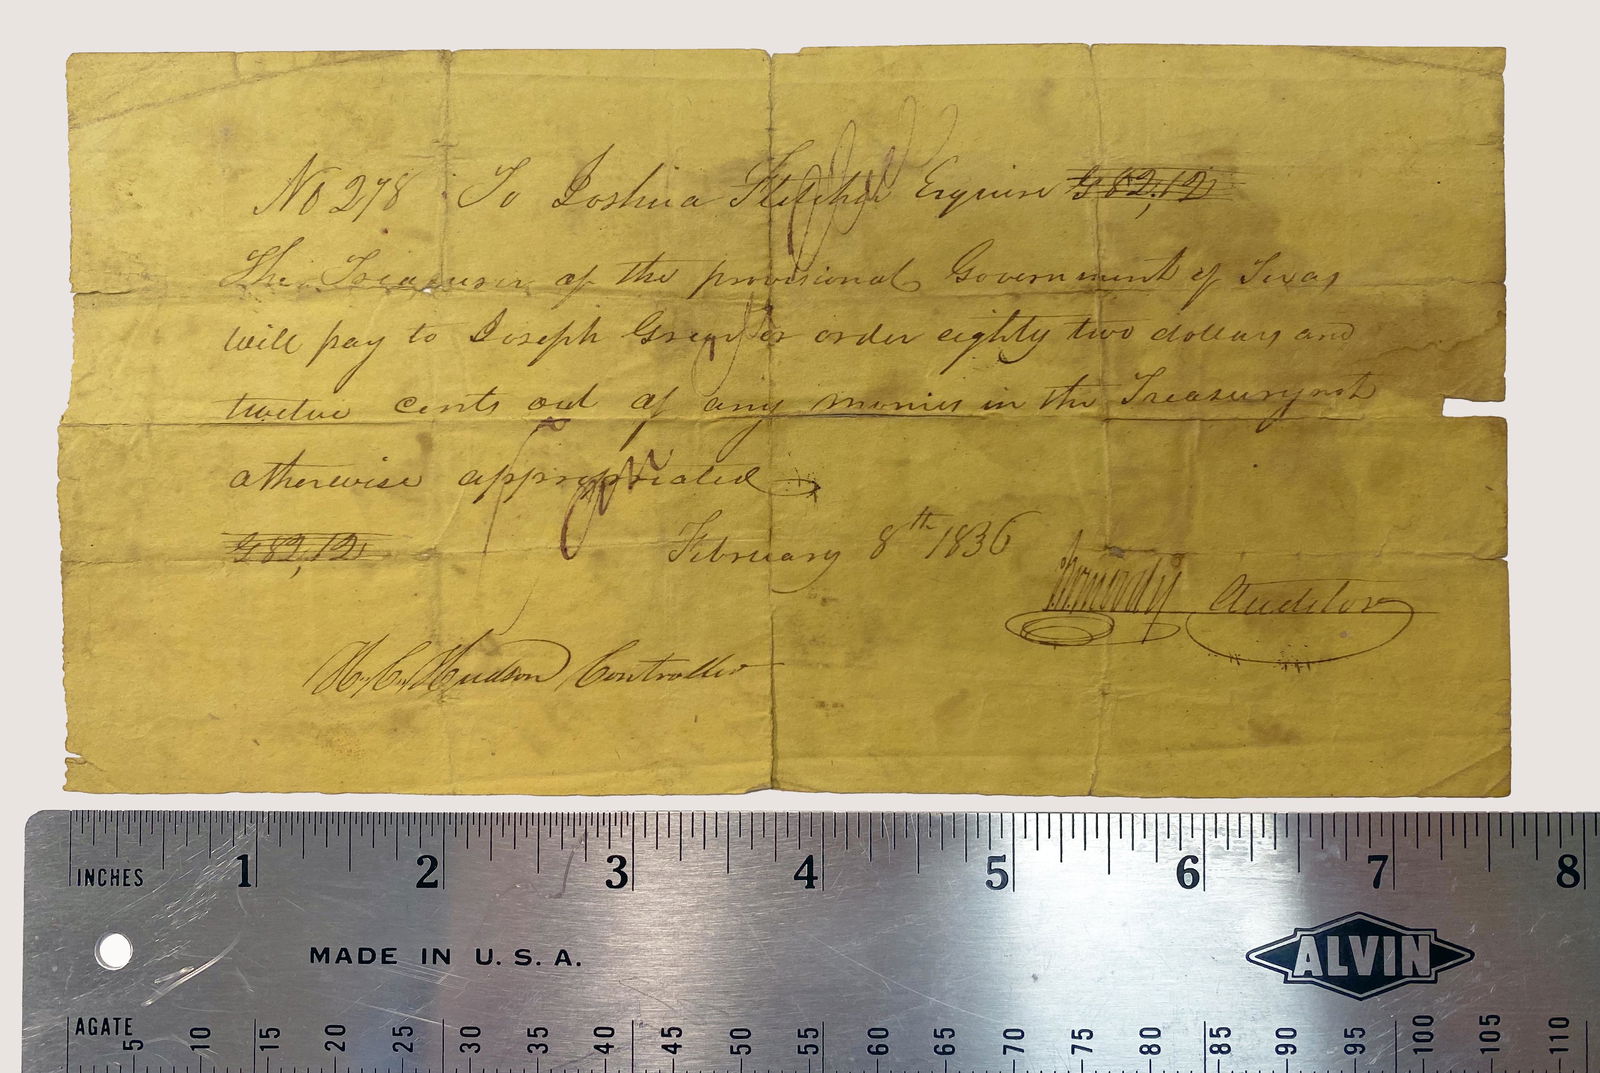 No 278 To Joshua Fletcher Esquire $82,12
The Treasurer of the provisional Government of Texas
will pay to Joseph Greer or order eighty two dollars and
twelve cents out of any monies in the Treasury not
otherwise appropriated
$82,12 February 8th 1836
Auditor
H. C. Hudson Controller
INCHES 1 2 3 4 5 6 7 8
MADE IN U.S.A. ALVIN
AGATE 5 10 15 20 25 30 35 40 45 50 55 60 65 70 75 80 85 90 95 100 105 110